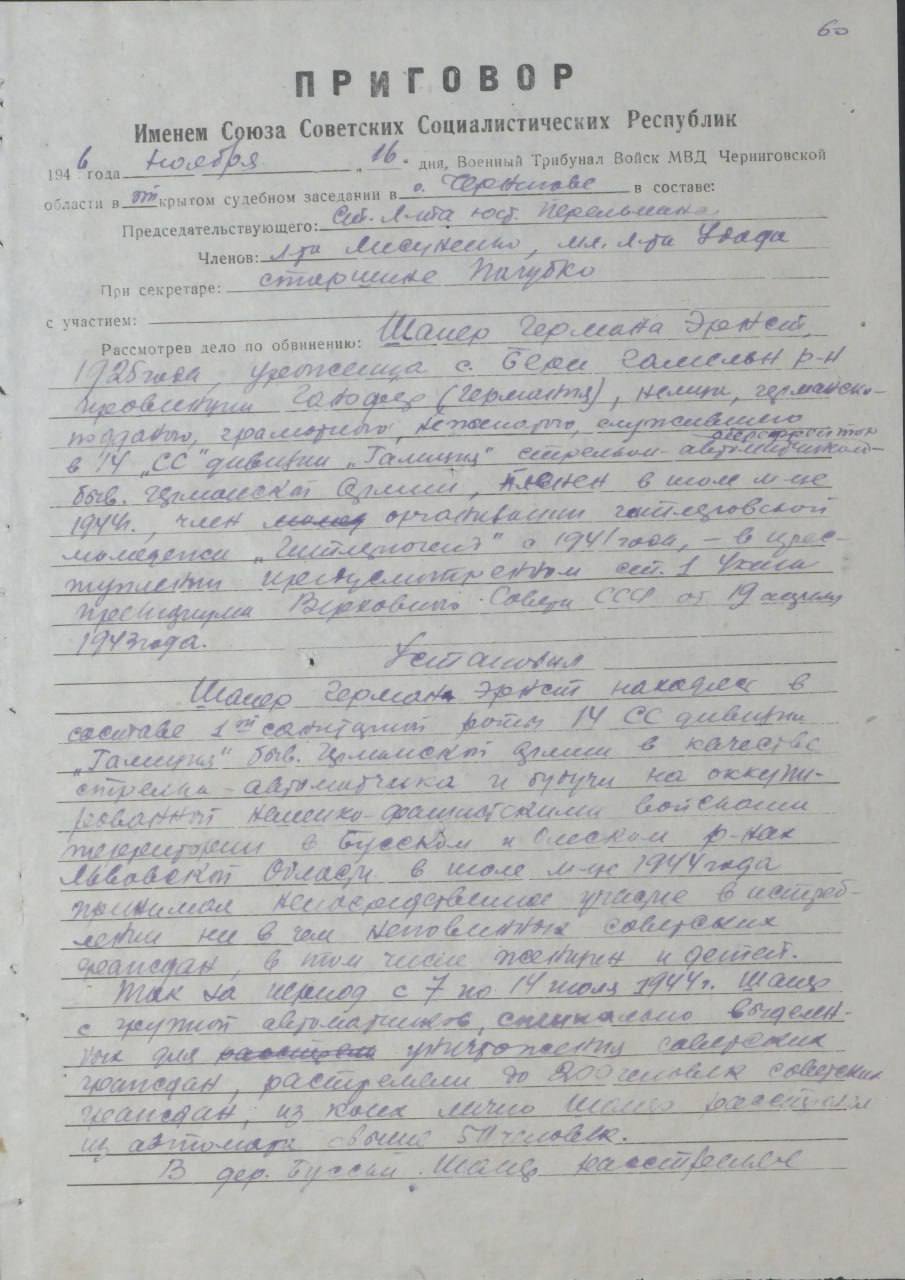 60
ПРИГОВОР
Именем Союза Советских Социалистических Республик
1946 года ноября „16" дня, Военный Трибунал Войск МВД Черниговской
области в открытом судебном заседании в г. Чернигове в составе:
Председательствующего: Ст. Л-та юст. Перельмана
Членов: Л-та Лисуненко, мл. л-та
При секретаре: старшине
с участием:
Рассмотрев дело по обвинению: Шапер Германа Эрнст,
1925 года, уроженца с. Гамельн р-н
провинции Ганофер (Германия), немца, германско-
подданого, грамотного, неженатого, служившего
в 14 „СС" дивизии „Галиция" стрелком-автоматчиком
быв. Германской Армии, пленен в июле м-це
1944г., член молод организации гитлеровской
молодежи „Гитлерюгенд" с 1941 года, – в прес-
туплении предусмотренном ст. 1 Указа
президиума Верховного Совета СССР от 19 апреля
1943 года.
Установил
Шапер Герман Эрнст находясь в
составе 1ой санитарной роты 14 СС дивизии
„Галиция" быв. Германской армии в качестве
стрелка-автоматчика и будучи на оккупи-
рованной немецко-фашистскими войсками
территории в Бусском и Олеском р-нах
Львовской Области в июле м-це 1944 года
принимал непосредственное участие в истреб-
лении ни в чем неповинных советских
граждан, в том числе женщин и детей.
Так за период с 7 по 14 июля 1944г. Шапер
с группой автоматчиков, специально выделен-
ных для расстрела уничтожения советских
граждан, расстреляли до 200 человек советских
граждан, из коих лично Шапер расстрелял
из автомата свыше 50 человек.
В дер. Шапер расстрелял